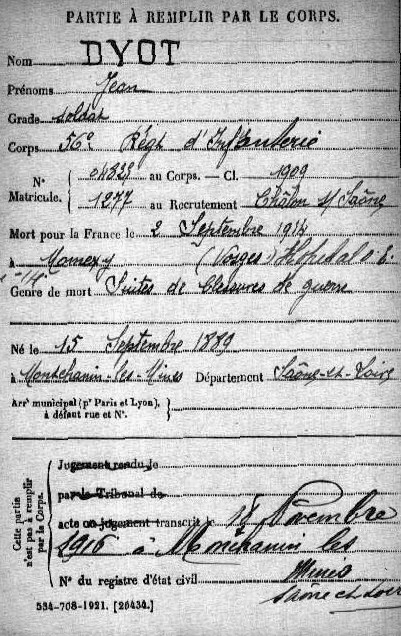 PARTIE À REMPLIR PAR LE CORPS.
Nom DYOT
Prénoms Jean
Grade soldat
Corps 56e Régt d'Infanterie
N° Matricule. { 04333 au Corps. — Cl. 1909
1277 au Recrutement Châlon s/ Saône
Mort pour la France le 2 Septembre 1914
à Nomexy (Vosges) Hôpital
Genre de mort Suites de blessures de guerre
Né le 15 Septembre 1889
à Montchanin-les-Mines Département Saône-et-Loire
Arrt municipal (pr Paris et Lyon), à défaut rue et N°.
Cette partie n'est pas à remplir par le Corps.
Jugement rendu le
par le Tribunal de
acte ou jugement transcrit le 18 Novembre
1916 à Montchanin les
Mines
N° du registre d'état civil
Saône et Loire
534-708-1921. [26434.]